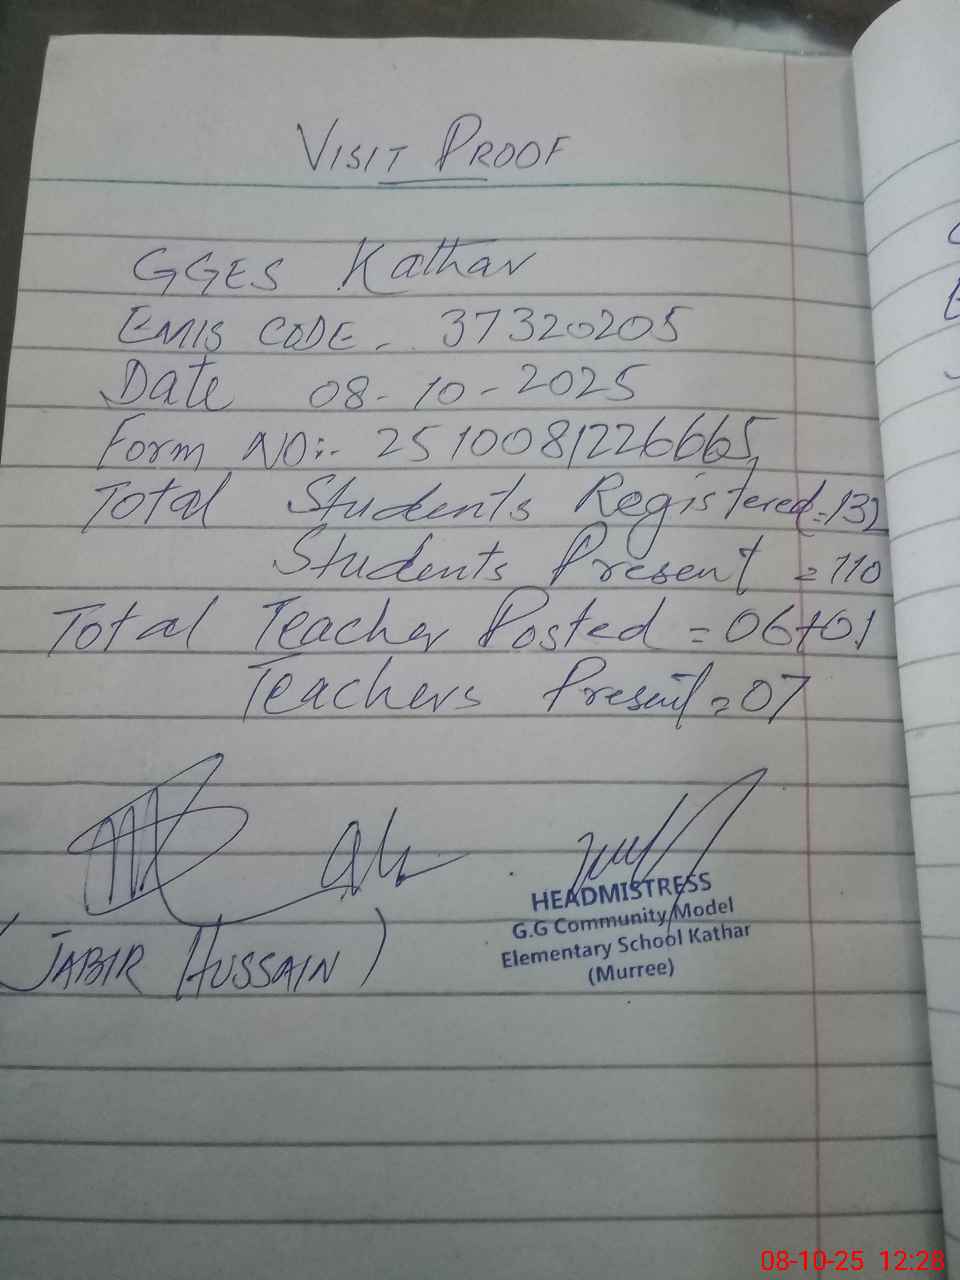 VISIT PROOF
GGES Kathar
EMIS CODE. 37320205
Date 08-10-2025
Form NO:- 2510081226665
Total Students Registered=132
Students Present = 110
Total Teacher Posted = 06+01
Teachers Present = 07
(JABIR HUSSAIN)
HEADMISTRESS
G.G Community Model
Elementary School Kathar
(Murree)
08-10-25 12:28